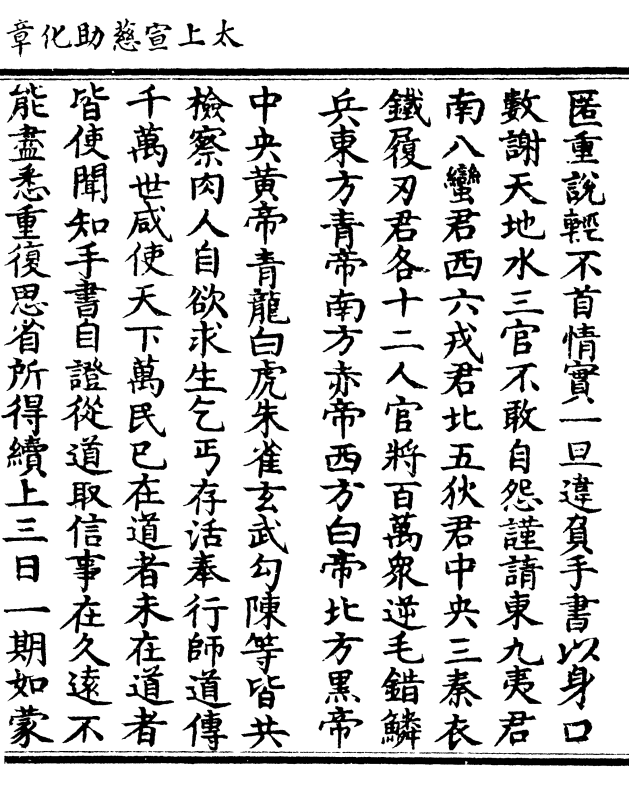 太上宣慈助化章
匿重說輕不首情實一旦違負手書以身口
數謝天地水三官不敢自怨謹請東九夷君
南八蠻君西六戎君北五狄君中央三秦衣
鐵履刃君各十二人官將百萬眾逆毛錯鱗
兵東方青帝南方赤帝西方白帝北方黑帝
中央黃帝青龍白虎朱雀玄武勾陳等皆共
檢察肉人自欲求生乞丐存活奉行師道傳
千萬世咸使天下萬民已在道者未在道者
皆使聞知手書自證從道取信事在久遠不
能盡悉重復思省所得續上三日一期如蒙